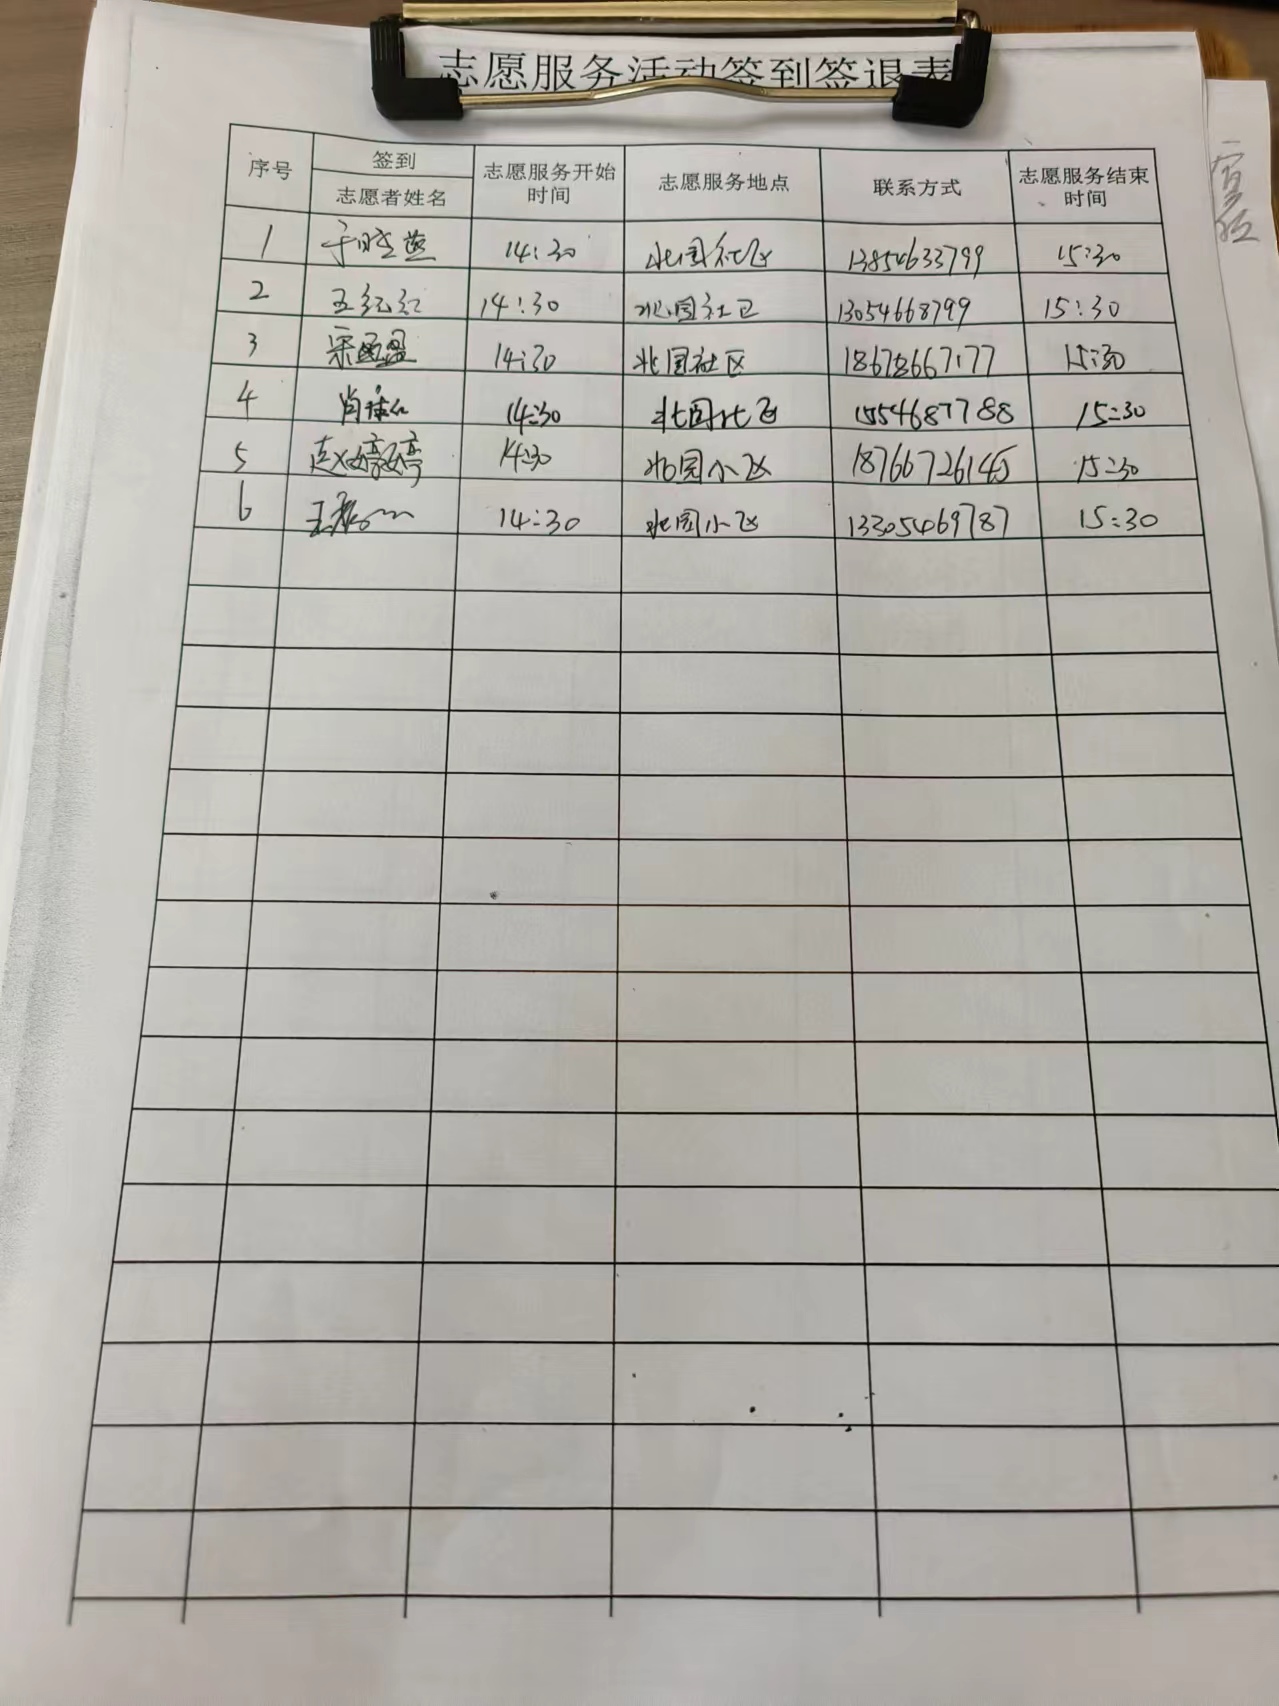 志愿服务活动签到签退表
序号 签到 志愿服务开始时间 志愿服务地点 联系方式 志愿服务结束时间
志愿者姓名
1 于晓燕 14:30 北园社区 13854633799 15:30
2 王红红 14:30 北园社区 13054668799 15:30
3 宋盈盈 14:30 北园社区 18678667177 15:30
4 肖 14:30 北园社区 1554687788 15:30
5 赵婷婷 14:30 北园小区 18766726145 15:30
6 王 14:30 北园小区 13305469787 15:30